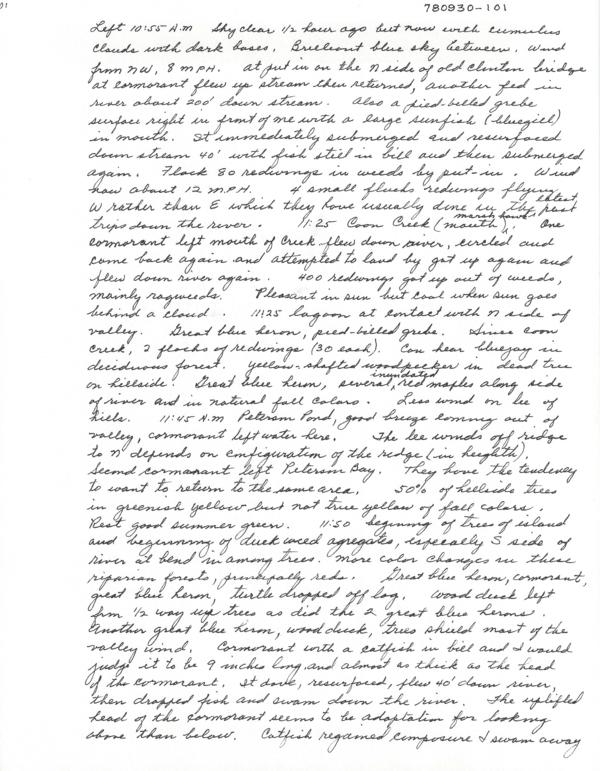 780930-101
Left 10:55 A.M Sky clear 1/2 hour ago but now with cumulus
clouds with dark bases. Brillient blue sky between. Wind
from NW, 8 MPH. At put in on the N side of old Clinton bridge
at cormorant flew up stream then returned, another fed in
river about 200' down stream. Also a pied-billed grebe
surface right in front of me with a large sunfish (bluegill)
in mouth. It immediately submerged and resurfaced
down stream 40' with fish still in bill and then submerged
again. Flock 80 redwings in weeds by put-in. Wind
now about 12 M.P.H. 4 small flocks redwings flying
W rather than E which they have usually done in the latest past
trips down the river. 11:25 Coon Creek (mouth), marsh hawk. One
cormorant left mouth of Creek flew down river, circled and
come back again and attempted to land by got up again and
flew down river again. 400 redwings got up out of weeds,
mainly ragweeds. Pleasant in sun but cool when sun goes
behind a cloud. 11:25 lagoon at contact with N side of
valley. Great blue heron, pied-billed grebe. Since coon
creek, 2 flocks of redwings (30 each). Can hear bluejay in
deciduous forest. Yellow-shafted woodpecker in dead tree
on hillside. Great blue heron, several inundated red maples along side
of river and in natural fall colors. Less wind on lee of
hills. 11:45 A.M Peterson Pond, good breeze coming out of
valley, cormorant left water here. The lee winds off ridge
to N depends on configuration of the redge (in heighth).
Second cormanant left Peterson Bay. They have the tendency
to want to return to the same area. 50% of hillside trees
in greenish yellow but not true yellow of fall colors.
Rest good summer green. 11:50 begining of trees of island
and beginning of duck weed agregates, especially S side of
river at bend in among trees. More color changes in these
riparian forests, principally reds. Great blue heron, cormorant,
great blue heron, turtle dropped off log. Wood duck left
from 1/2 way up trees as did the 2 great blue herons.
Another great blue heron, wood duck, trees shield most of the
valley wind. Cormorant with a catfish in bill and I would
judge it to be 9 inches long and almost as thick as the head
of the cormorant. It dove, resurfaced, flew 40' down river,
then dropped fish and swam down the river. The uplifted
head of the cormorant seems to be adaptation for looking
above than below. Catfish regained composure & swam away